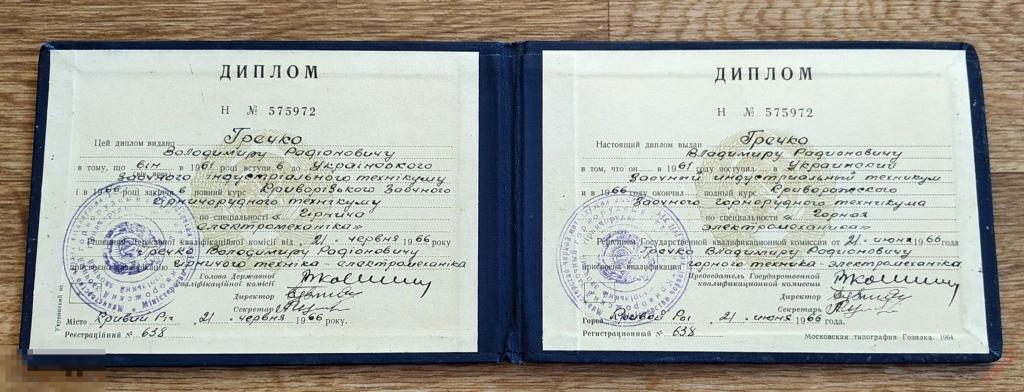 ДИПЛОМ
Н № 575972
Цей диплом видано Гречко
Володимиру Радіоновичу
в тому, що він в 1961 році вступив до Українського
Заочного індустріального технікуму
і в 1966 році закінчив повний курс Криворізького Заочного
Гірничорудного технікуму
по спеціальності „Гірнича
електромеханіка»
Рішенням Державної кваліфікаційної комісії від „21" червня 1966 року
Гречко Володимиру Радіоновичу
присвоєно кваліфікацію гірничого техніка-електромеханіка
Голова Державної
кваліфікаційної комісії
Директор
Секретар
Місто Кривий Ріг „21" червня 1966 року.
Реєстраційний № 638
Украинский яз.
ДИПЛОМ
Н № 575972
Настоящий диплом выдан Гречко
Владимиру Радионовичу
в том, что он в 1961 году поступил в Украинский
Заочный индустриальный техникум
и в 1966 окончил полный курс Криворожского
Заочного горнорудного техникума
по специальности «Горная
электромеханика»
Решением Государственной квалификационной комиссии от „21" июня 1966 года
Гречко Владимиру Радионовичу
присвоена квалификация горного техника-электромеханика
Председатель Государственной
квалификационной комиссии
Директор
Секретарь
Город Кривой Рог „21" июня 1966 года.
Регистрационный № 638
Московская типография Гознака. 1964.